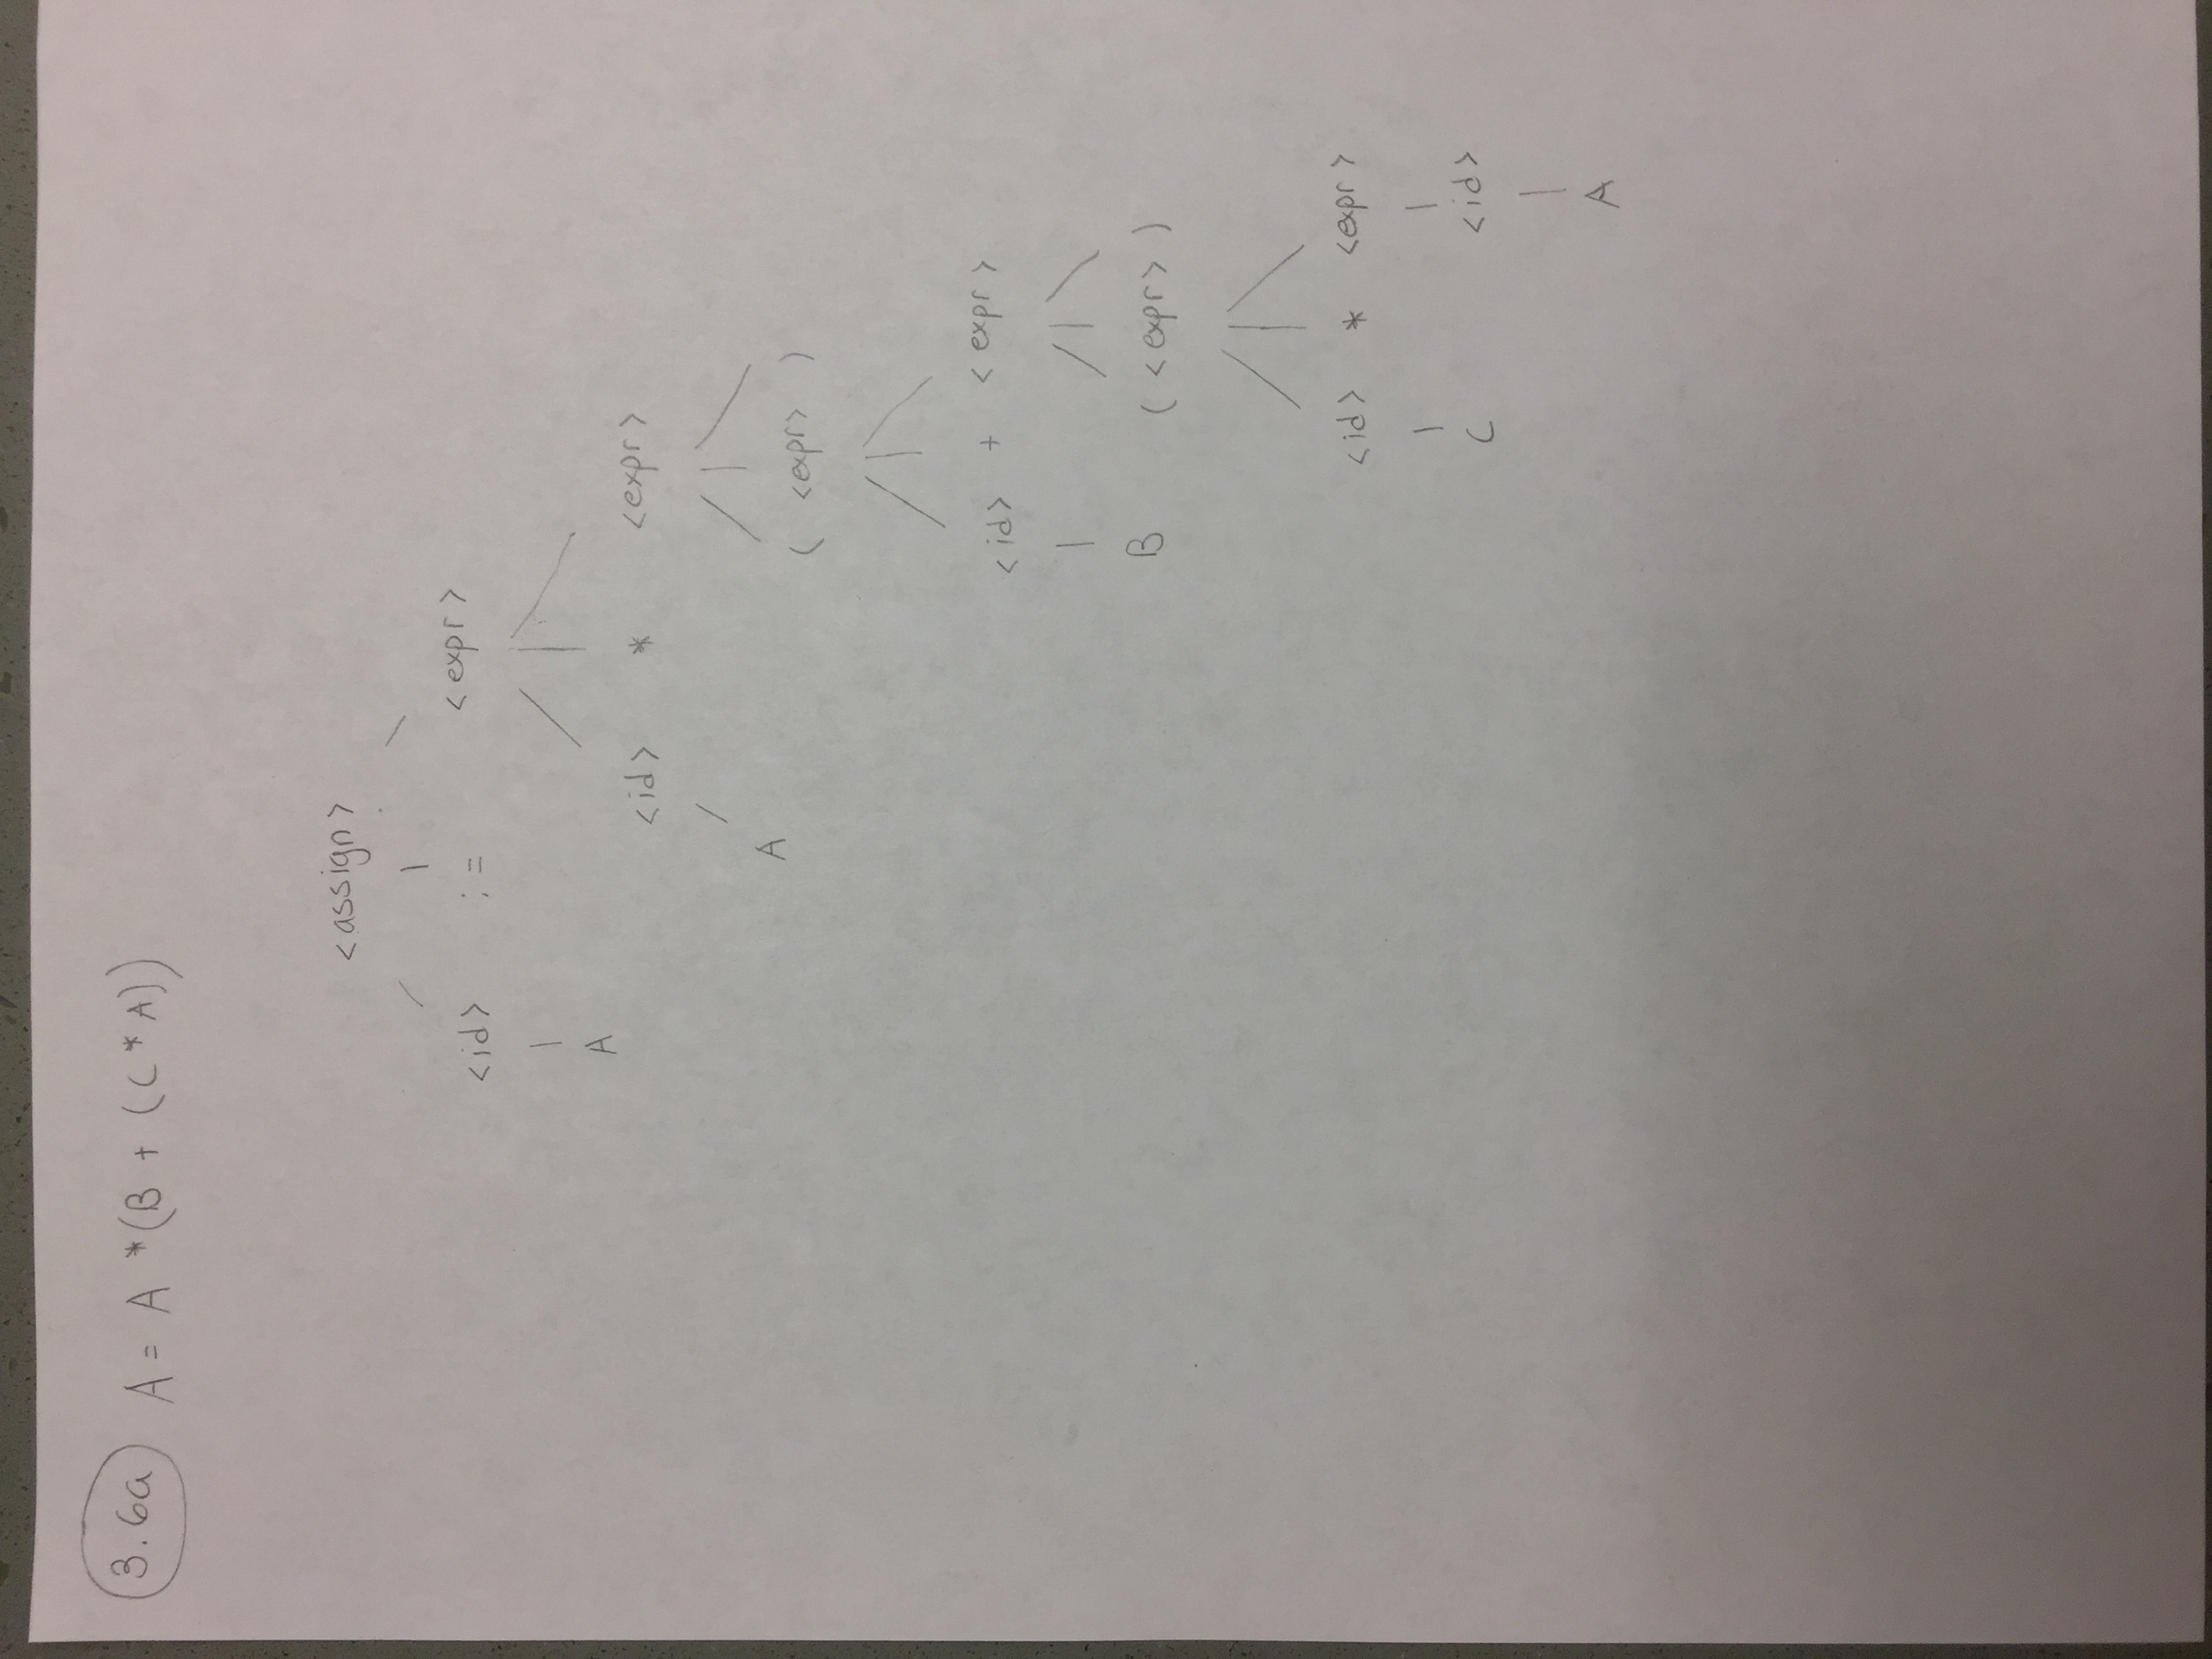 3.6a A = A * (B + (C * A))
<assign>
<id> := <expr>
A <id> * <expr>
A ( <expr> )
<id> + <expr>
B ( <expr> )
<id> * <expr>
C <id>
A